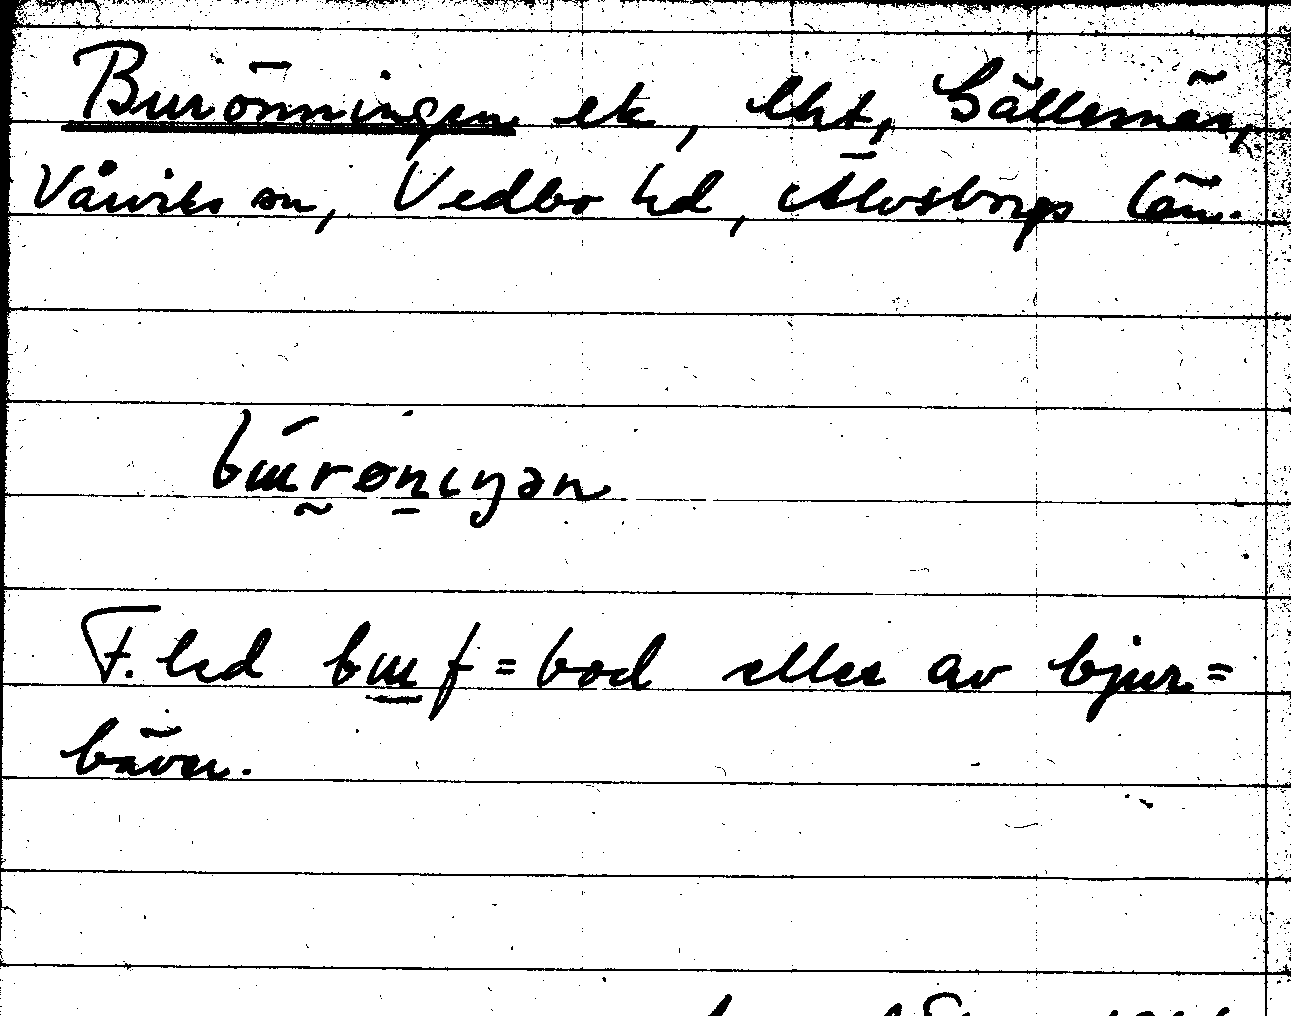 Burönningen ek, lht, Gällesnäs,
Vårviks sn, Vedbo hd, Älvsborgs län.
F. led bɯ f = bod eller av bjur=
bäver.